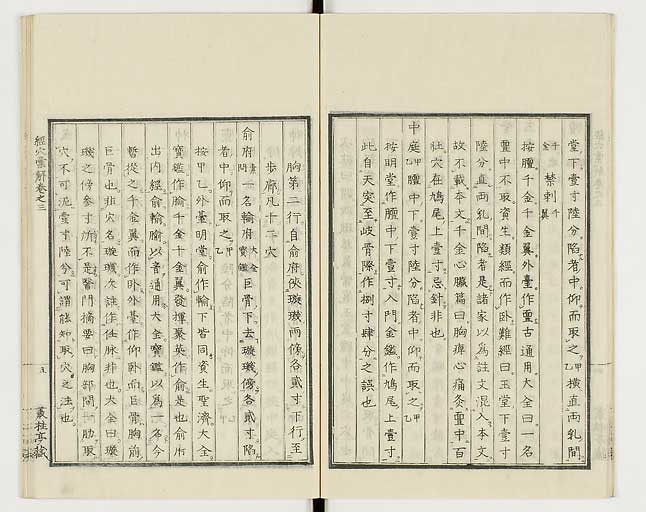 堂下壹寸陸分陷者中仰而取之甲乙橫直両乳間
千金禁刺千金翼
按膻千金千金翼外臺作亶古通用大全曰一名
亶中不取資生類經而作臥難經曰玉堂下壹寸
陸分直両乳間陷者是諸家以爲註文混入本文
故不載本文千金心臟篇曰胸痺心痛灸亶中百
壯穴在鳩尾上壹寸忌針非也
中庭甲乙膻中下壹寸陸分陷者中仰而取之甲乙
按明堂作膻中下壹寸入門金鑑作鳩尾上壹寸
此自天突至岐骨際作捌寸肆分之誤也
胸第二行自俞府俠璇璣両傍各貳寸下行至
步廊凡十二穴
俞府素問一名輸府大全寶鑑巨骨下去璇璣傍各貳寸陷
者中仰而取之甲乙
按甲乙外臺明堂俞作輸下皆同資生聖濟大全
寶鑑作腧千金千金翼發揮聚英作俞是也俞府
出内經俞輸腧以音通用大全寶鑑以爲一名今
暫從之千金翼而作外外臺作仰臥而巨骨胸前
巨骨也非穴名璇璣次註作任脉非也大全曰璇
璣之傍參寸所不是醫門摘要曰胸部開一肋取
穴不可泥壹寸陸分可謂能知取穴之法也
經穴彙解卷之三
五
叢桂亭藏